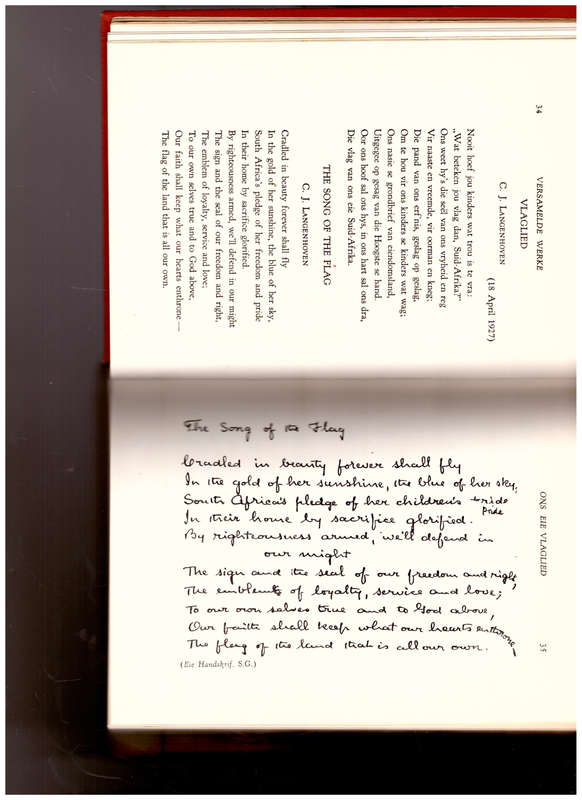 34
VERSAMELDE WERKE
VLAGLIED
(18 April 1927)
C. J. LANGENHOVEN
Nooit hoef jou kinders wat trou is te vra:
„Wat beteken jou vlag dan, Suid-Afrika?”
Ons weet hy's die seël van ons vryheid en reg
Vir naaste en vreemde, vir oorman en kneg;
Die pand van ons erf'nis, geslag op geslag,
Om te hou vir ons kinders se kinders wat wag;
Ons nasie se grondbrief van eiendomsland,
Uitgegee op gesag van die Hoogste se hand.
Oor ons hoof sal ons hys, in ons hart sal ons dra,
Die vlag van ons eie Suid-Afrika.
THE SONG OF THE FLAG
C. J. LANGENHOVEN
Cradled in beauty forever shall fly
In the gold of her sunshine, the blue of her sky,
South Africa's pledge of her freedom and pride
In their home by sacrifice glorified.
By righteousness armed, we'll defend in our might
The sign and the seal of our freedom and right,
The emblem of loyalty, service and love;
To our own selves true and to God above,
Our faith shall keep what our hearts enthrone —
The flag of the land that is all our own.
ONS EIE VLAGLIED
35
The Song of the Flag
Cradled in beauty forever shall fly
In the gold of her sunshine, the blue of her sky,
South Africa's pledge of her children's
pride
In their home by sacrifice glorified.
By righteousness armed, we'll defend in
our might
The sign and the seal of our freedom and right,
The emblem of loyalty, service and love;
To our own selves true and to God above,
Our faith shall keep what our hearts enthrone —
The flag of the land that is all our own.
(Eie Handskrif. S.G.)